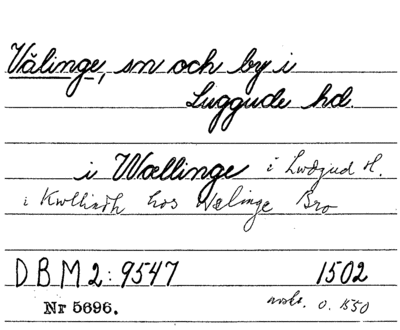 Välinge, sn och by i
Luggude hd.
i Wællinge i Ludgud H.
i hos Wælinge Bro
DBM2:9547 1502
Nr 5696. o. 1550